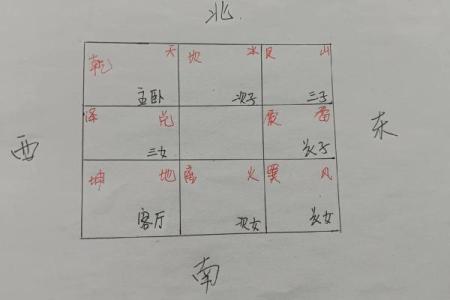 北
乾 天 坎 水 艮 山
主卧 次子 三子
泽 兑 震 雷
西 三女 长子 东
坤 地 离 火 巽 风
客厅 次女 长女
南